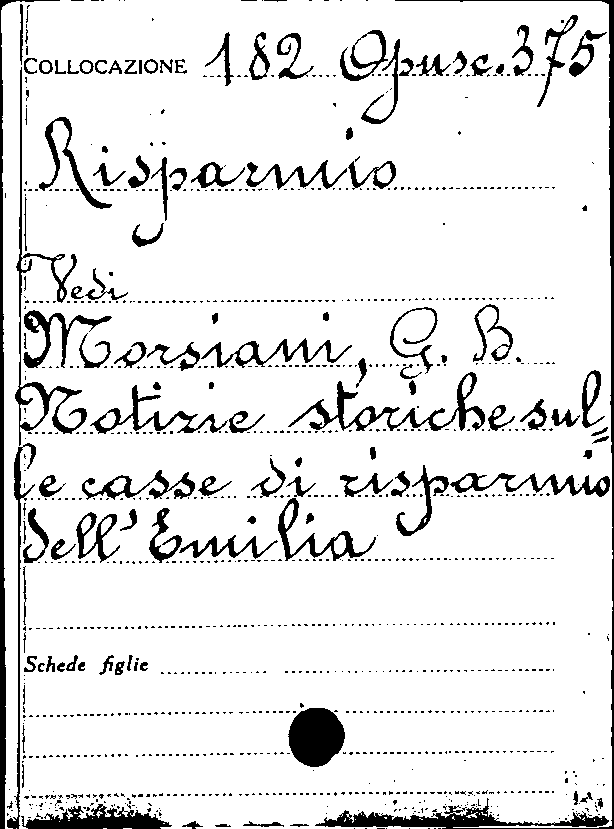 COLLOCAZIONE 182 Opusc. 375
Risparmio
Vedi
Morsiani, G. B.
Notizie storiche sul=
le casse di risparmio
dell'Emilia
Schede figlie